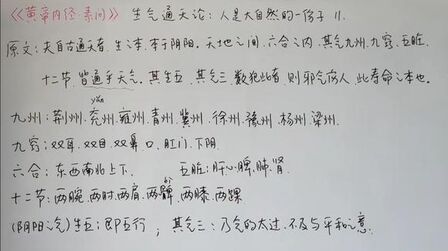 《《黄帝内径·素问》 生气通天论：人是大自然的一份子
原文：夫自古通天者，生之本，本于阴阳。天地之间，六合之内，其气九州、九窍、五脏、
十二节，皆通乎天气。其生五，其气三。数犯此者，则邪气伤人，此寿命之本也。
yǎn
九州：荆州.兖州.雍州.青州.冀州.徐州.豫州.杨州.梁州.
九窍：双耳.双目.双鼻.口.肛门.下阴.
六合：东西南北上下. 五脏：肝心脾.肺.肾.
十二节：两腕.两肘.两肩.两髀.两膝.两踝
(阴阳之气)生五：即五行； 其气三：乃气的太过.不及与平和之意.